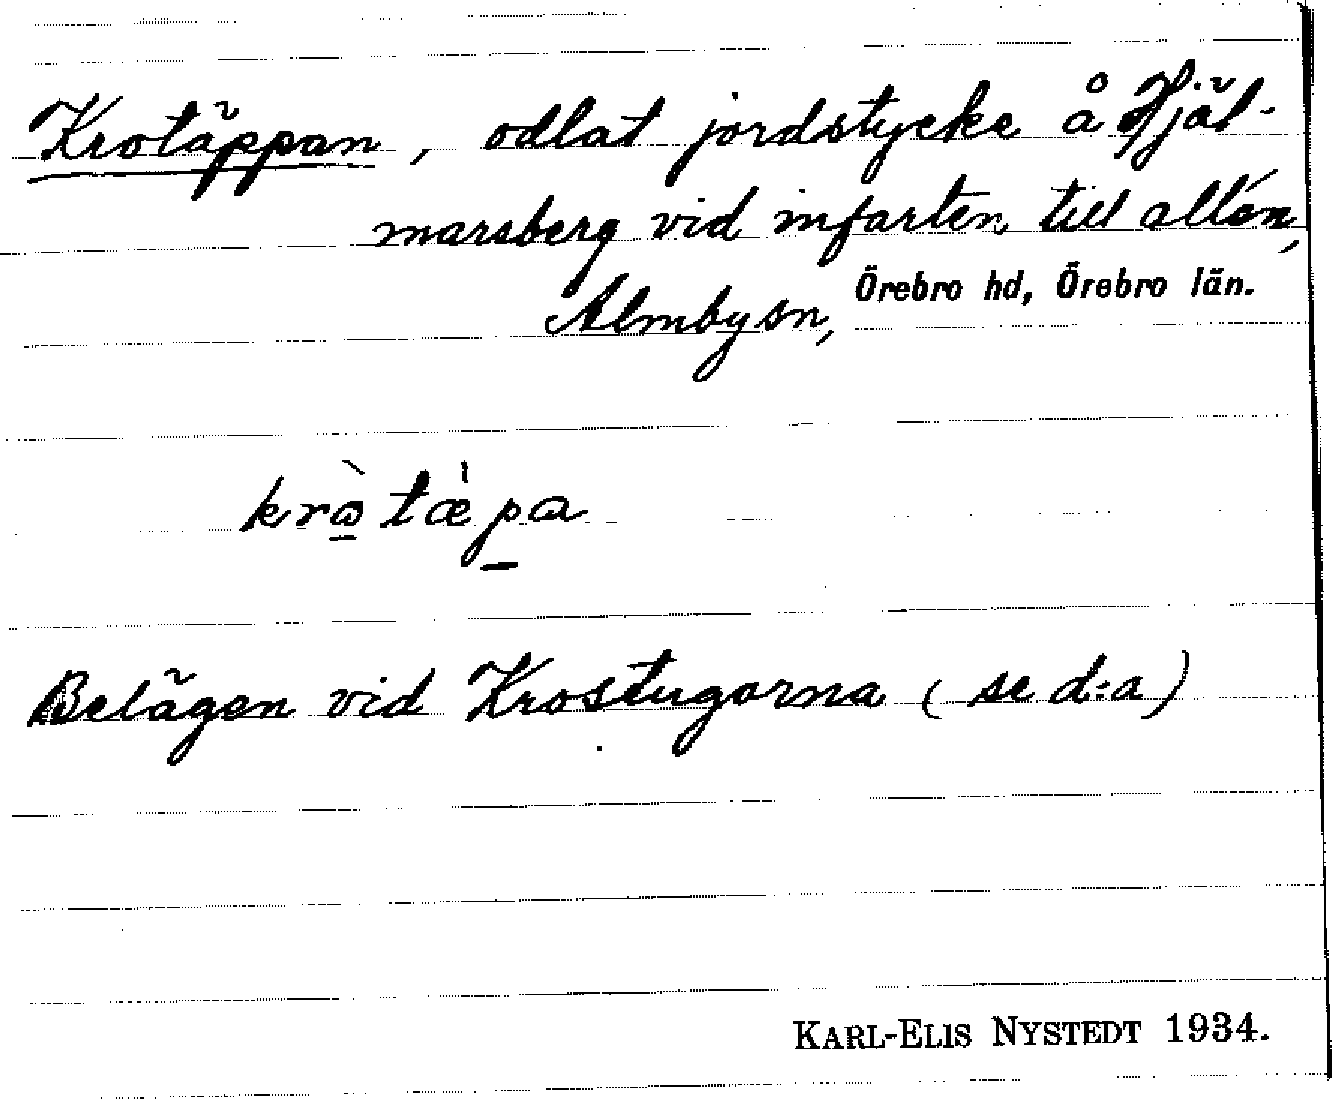 Krotäppan, odlat jordstycke å Hjäl-
marsberg vid infarten till allén,
Almby sn, Örebro hd, Örebro län.
krò̱tæ̀p̱a
Belägen vid Krostugorna (se d:a)
KARL-ELIS NYSTEDT 1934.